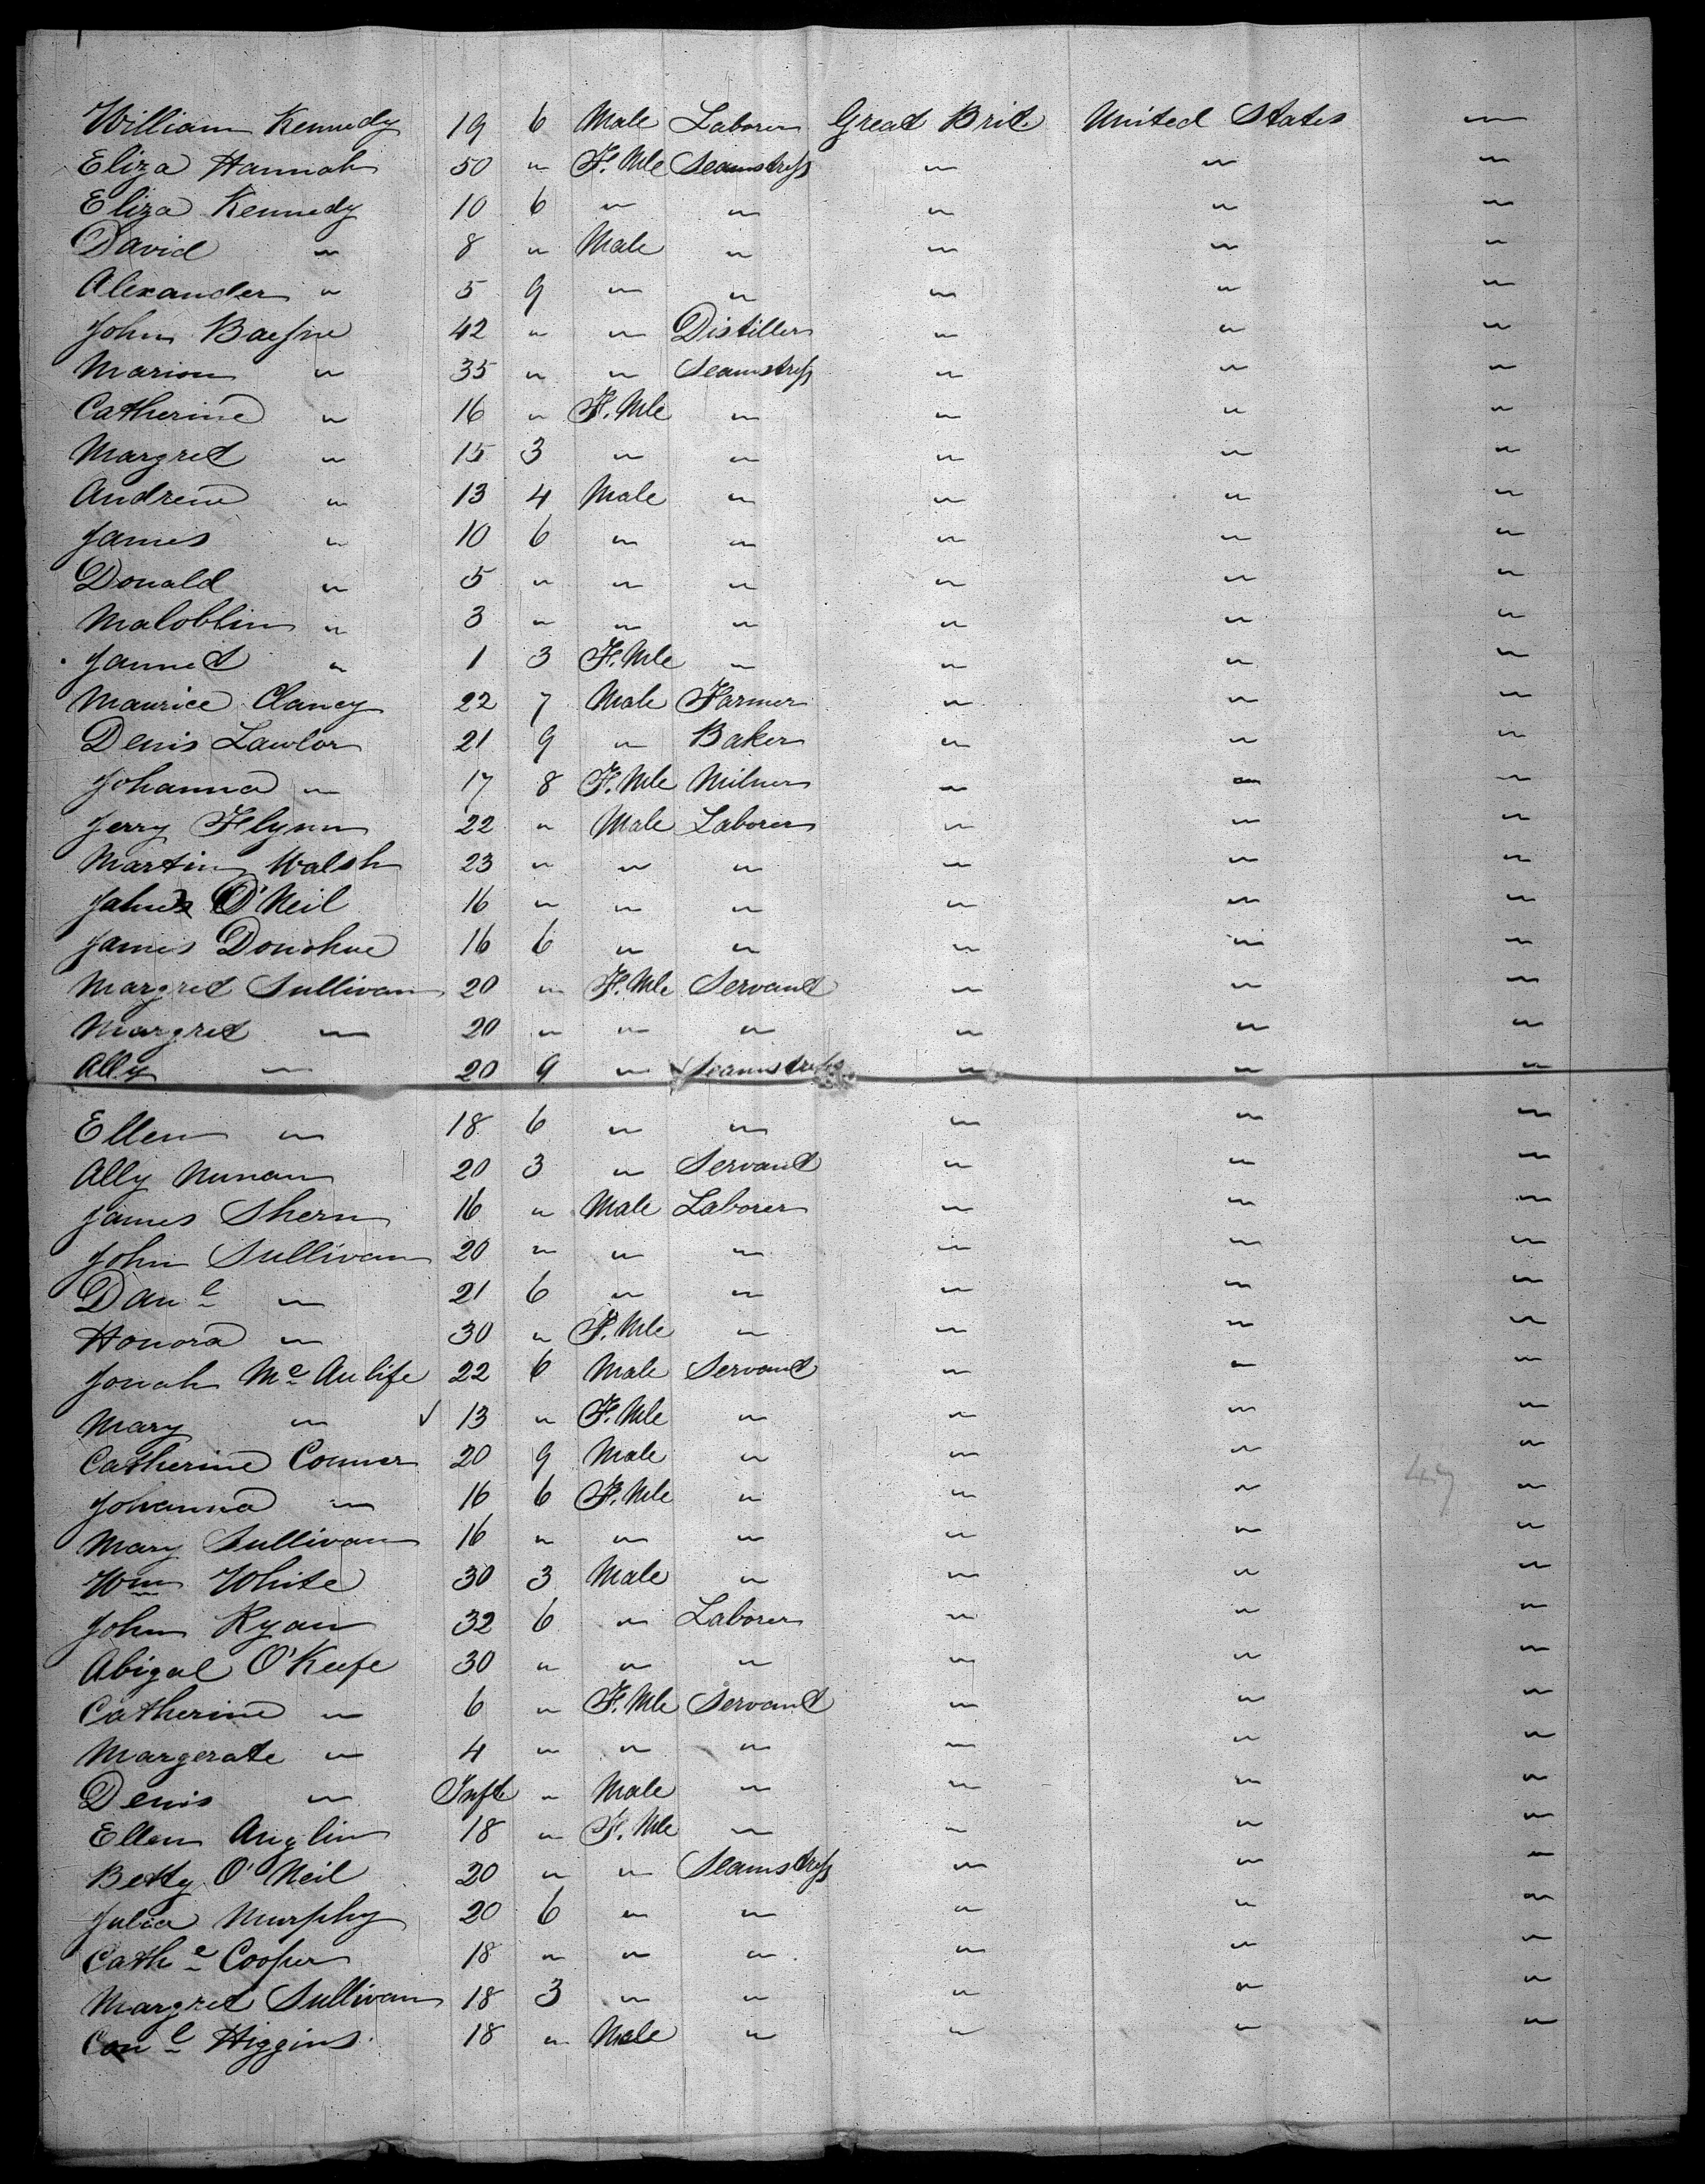 William Kennedy 19 6 Male Laborer Great Brit United States "
Eliza Hannah 50 " F.Mle Seamstress " " "
Eliza Kennedy 10 6 " " " " "
David " 8 " Male " " " "
Alexander " 5 9 " " " " "
John 42 " " Distiller " " "
Marion " 35 " " Seamstress " " "
Catherine " 16 " F.Mle " " " "
Margret " 15 3 " " " " "
Andrew " 13 4 Male " " " "
James " 10 6 " " " " "
Donald " 5 " " " " " "
" 3 " " " " " "
Jannet " 1 3 F.Mle " " " "
Maurice Clancy 22 7 Male Farmer " " "
Denis Lawlor 21 9 " Baker " " "
Johanna " 17 8 F.Mle Milner " " "
Jerry Flynn 22 " Male Laborer " " "
Martin Walsh 23 " " " " " "
James O'Neil 16 " " " " " "
James Donohue 16 6 " " " " "
Margret Sullivan 20 " F.Mle Servant " " "
Margret " 20 " " " " " "
Ally " 20 9 " Seamstress " " "
Ellen " 18 6 " " " " "
Ally Nunan 20 3 " Servant " " "
James Shern 16 " Male Laborer " " "
John Sullivan 20 " " " " " "
Danl " 21 6 " " " " "
Honora " 30 " F.Mle " " " "
Jonah Mc Aulife 22 6 Male Servant " " "
Mary " √ 13 " F.Mle " " " "
Catherine Conner 20 9 Male " " " "
Johanna " 16 6 F.Mle " " " 49 "
Mary Sullivan 16 " " " " " "
Wm White 30 3 Male " " " "
John Ryan 32 6 " Laborer " " "
Abigal O'Keefe 30 " " " " " "
Catherine " 6 " F.Mle Servant " " "
Margerate " 4 " " " " " "
Denis " Inft " Male " " " "
Ellen Anglin 18 " F.Mle " " " "
Betty O'Neil 20 " " Seamstress " " "
Julia Murphy 20 6 " " " " "
Cathe Cooper 18 " " " " " "
Margret Sullivan 18 3 " " " " "
Conl Higgins 18 " Male " " " "